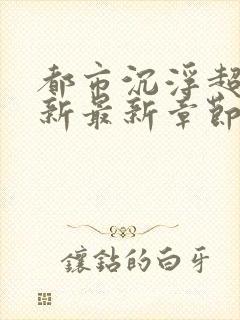 都市沉浮超
新最新章節
鑲鉆的白牙